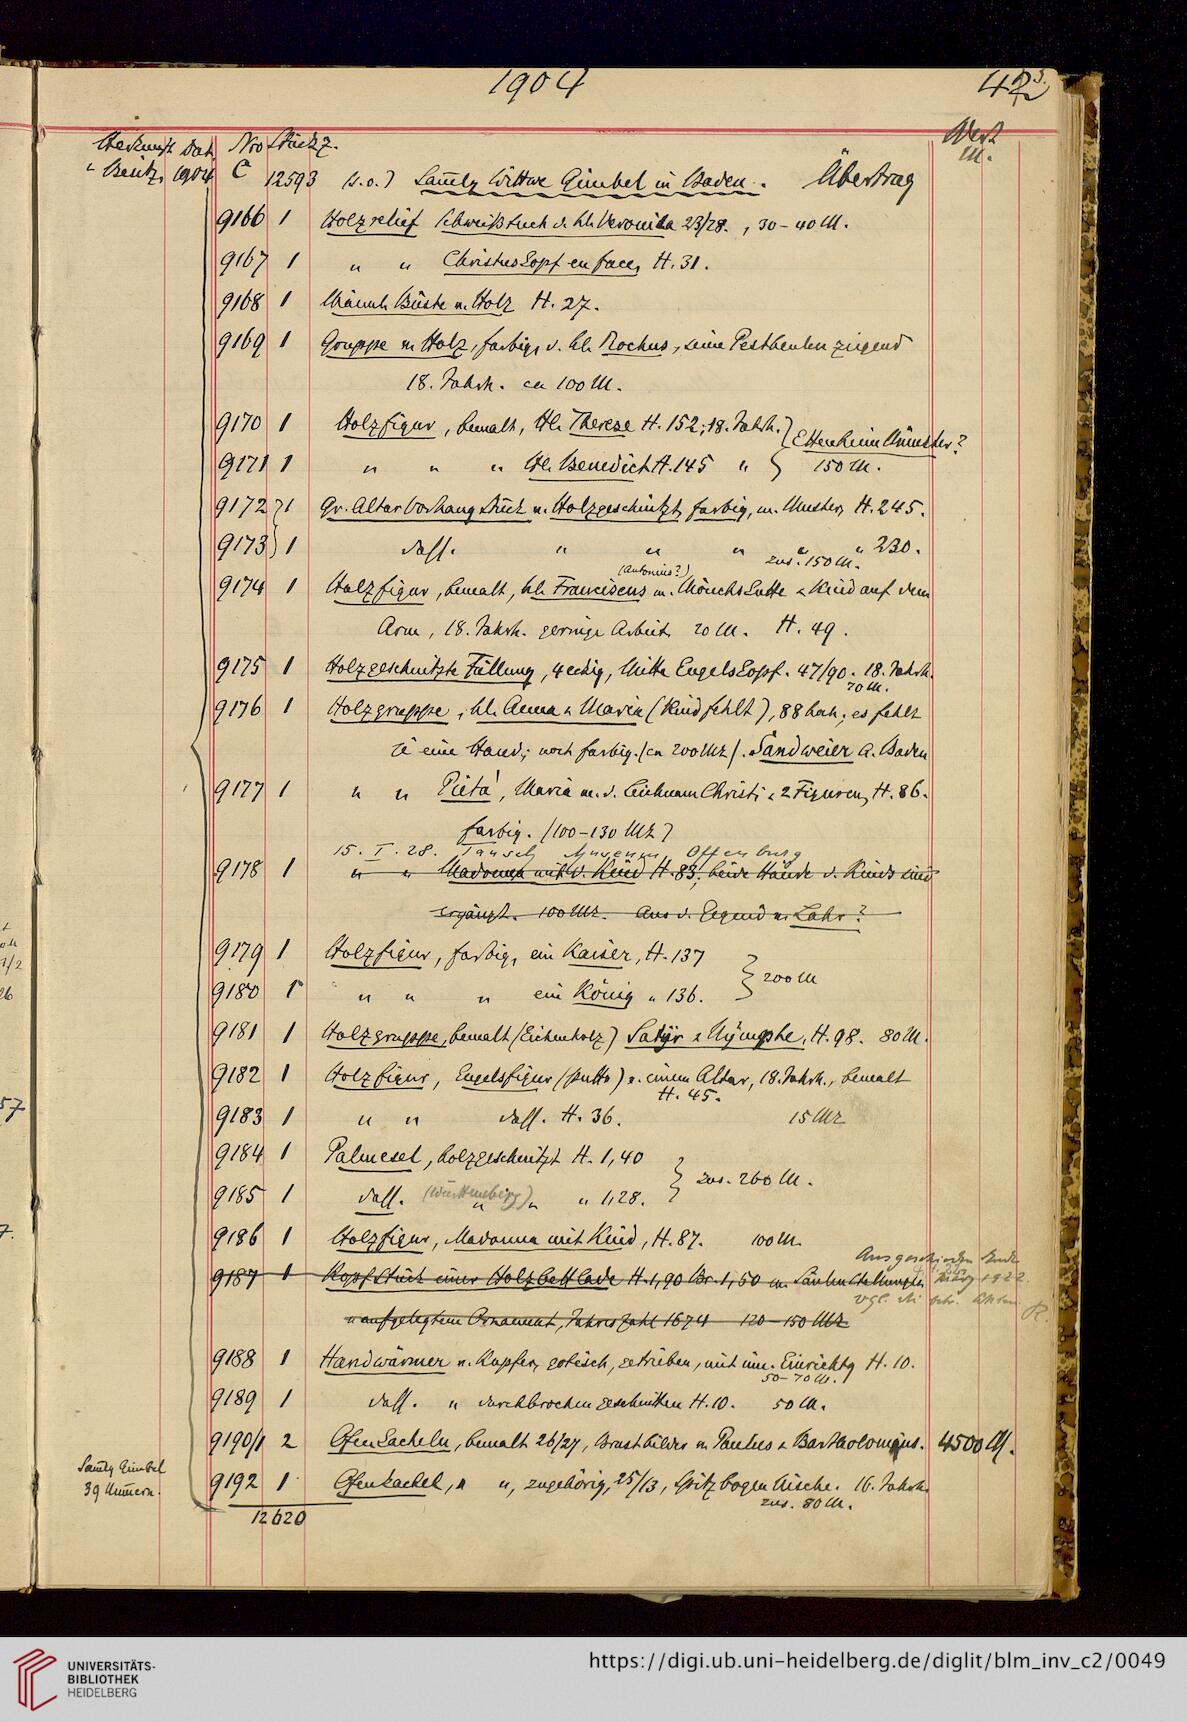 1904
Herkunft Dat. Nro Stückz. Wert
u. Besitz. 1904 C M.
12593 (s.o.) Samlg Wittwe Gimbel in Baden. Übertrag
9166 1 Holzrelief Schweißtuch d. hl. Veronika 23/28., 30-40 M.
9167 1 " " Christuskopf en face, H. 31.
9168 1 Männl. Büste v. Holz H. 27.
9169 1 Gruppe v. Holz, farbig, d. hl. Rochus, seine Pestbeulen zeigend
18. Jahrh. ca 100 M.
9170 1 Holzfigur, bemalt, Hl. Therese H. 152; 18. Jahrh. } Ettenheim Münster?
9171 1 " " " Hl. Benedict H. 145 " } 150 M.
9172 } 1 Gr. Altarvorhang Stück v. Holzgeschnitzt, farbig, m. Muster, H. 245.
9173 } 1 dass. " " " " " 230.
zus. 150 M.
(Antonius?)
9174 1 Holzfigur, bemalt, hl. Franciscus m. Mönchskutte & Kind auf dem
Arm, 18. Jahrh. geringe Arbeit, 20 M. H. 49.
9175 1 Holzgeschnitzte Füllung, 4eckig, Mitte Engelskopf. 47/90. 18. Jahrh.
70 M.
9176 1 Holzgruppe, hl. Anna & Maria (Kind fehlt), 88 hoch; es fehlt
je eine Hand; noch farbig. (ca 200 Mk). Sandweier A. Baden
9177 1 " " Pietà, Maria m. d. Leichnam Christi & 2 Figuren, H. 86.
farbig. (100-130 Mk)
15. I. 28. Tausch Museum Offenburg
9178 1 " " Madonna mit d. Kind H. 83; beide Hände d. Kinds sind
ergänzt. 100 Mk. Aus d. Gegend v. Lahr?
9179 1 Holzfigur, farbig, ein Kaiser, H. 137
9180 1 " " " ein König " 136. } 200 M
9181 1 Holzgruppe, bemalt (Eichenholz) Satyr & Nymphe, H. 98. 80 M.
9182 1 Holzfigur, Engelsfigur (Putto) v. einem Altar, 18. Jahrh., bemalt
H. 45.
9183 1 " " dass. H. 36. 15 Mk
9184 1 Palmesel, holzgeschnitzt H. 1,40
9185 1 dass. (Württembergg) " " " 1,28. } zus. 260 M.
9186 1 Holzfigur, Madonna mit Kind, H. 87. 100 M.
Ausgeschieden Ende
9187 1 Kopfstück einer Holzbettlade H. 1,90 Br. 1,50 m. Säulenstellungen März 1922
vgl. die betr. Akten. R.
u. aufgelegtem Ornament, Jahreszahl 1674 120-150 Mk
9188 1 Handwärmer v. Kupfer, gotisch, getrieben, mit inn. Einrichtg H. 10.
50-70 M.
9189 1 dass. " durchbrochen geschnitten H. 10. 50 M.
9190/1 2 Ofenkacheln, bemalt 26/27, Brustbilder v. Paulus & Bartholomäus. 4500 M.
Samlg Gimbel
39 Numern.
9192 1 Ofenkachel, " ", zugehörig, 25/13, Spitzbogen Nische. 16. Jahrh.
zus. 80 M.
12620
UNIVERSITÄTS-
BIBLIOTHEK
HEIDELBERG
https://digi.ub.uni-heidelberg.de/diglit/blm_inv_c2/0049